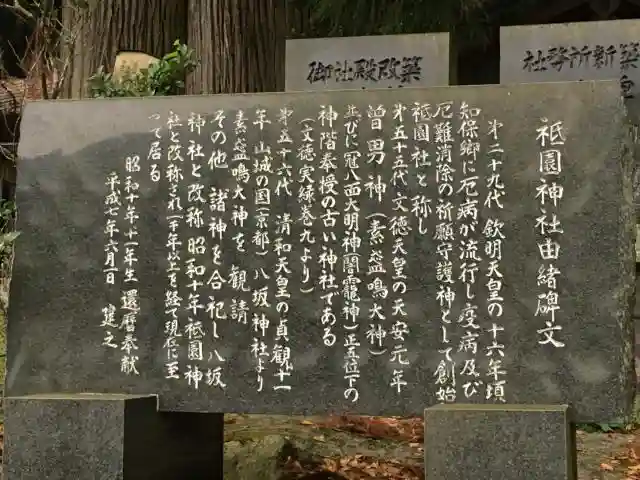 祇園神社由緒碑文
第二十九代 欽明天皇の十六年頃
知保郷に厄病が流行し疫病及び
厄難消除の祈願守護神として創始
祇園社と称し
第五十五代 文徳天皇の天安元年
曽男神(素盞鳴大神)
並びに冠八面大明神(闇龗神)正五位下の
神階奉授の古い神社である
(文徳実録巻九より)
第五十六代 清和天皇の貞観十一
年 山城の国(京都)八坂神社より
素盞鳴大神を観請
その他 諸神を合祀し八坂
神社と改称 昭和十年祗園神
社と改称され(千年以上を経て現在に至
って居る
昭和十年・十一年生 還暦奉献
平成七年六月一日 建之
御社殿改築
社務所新築